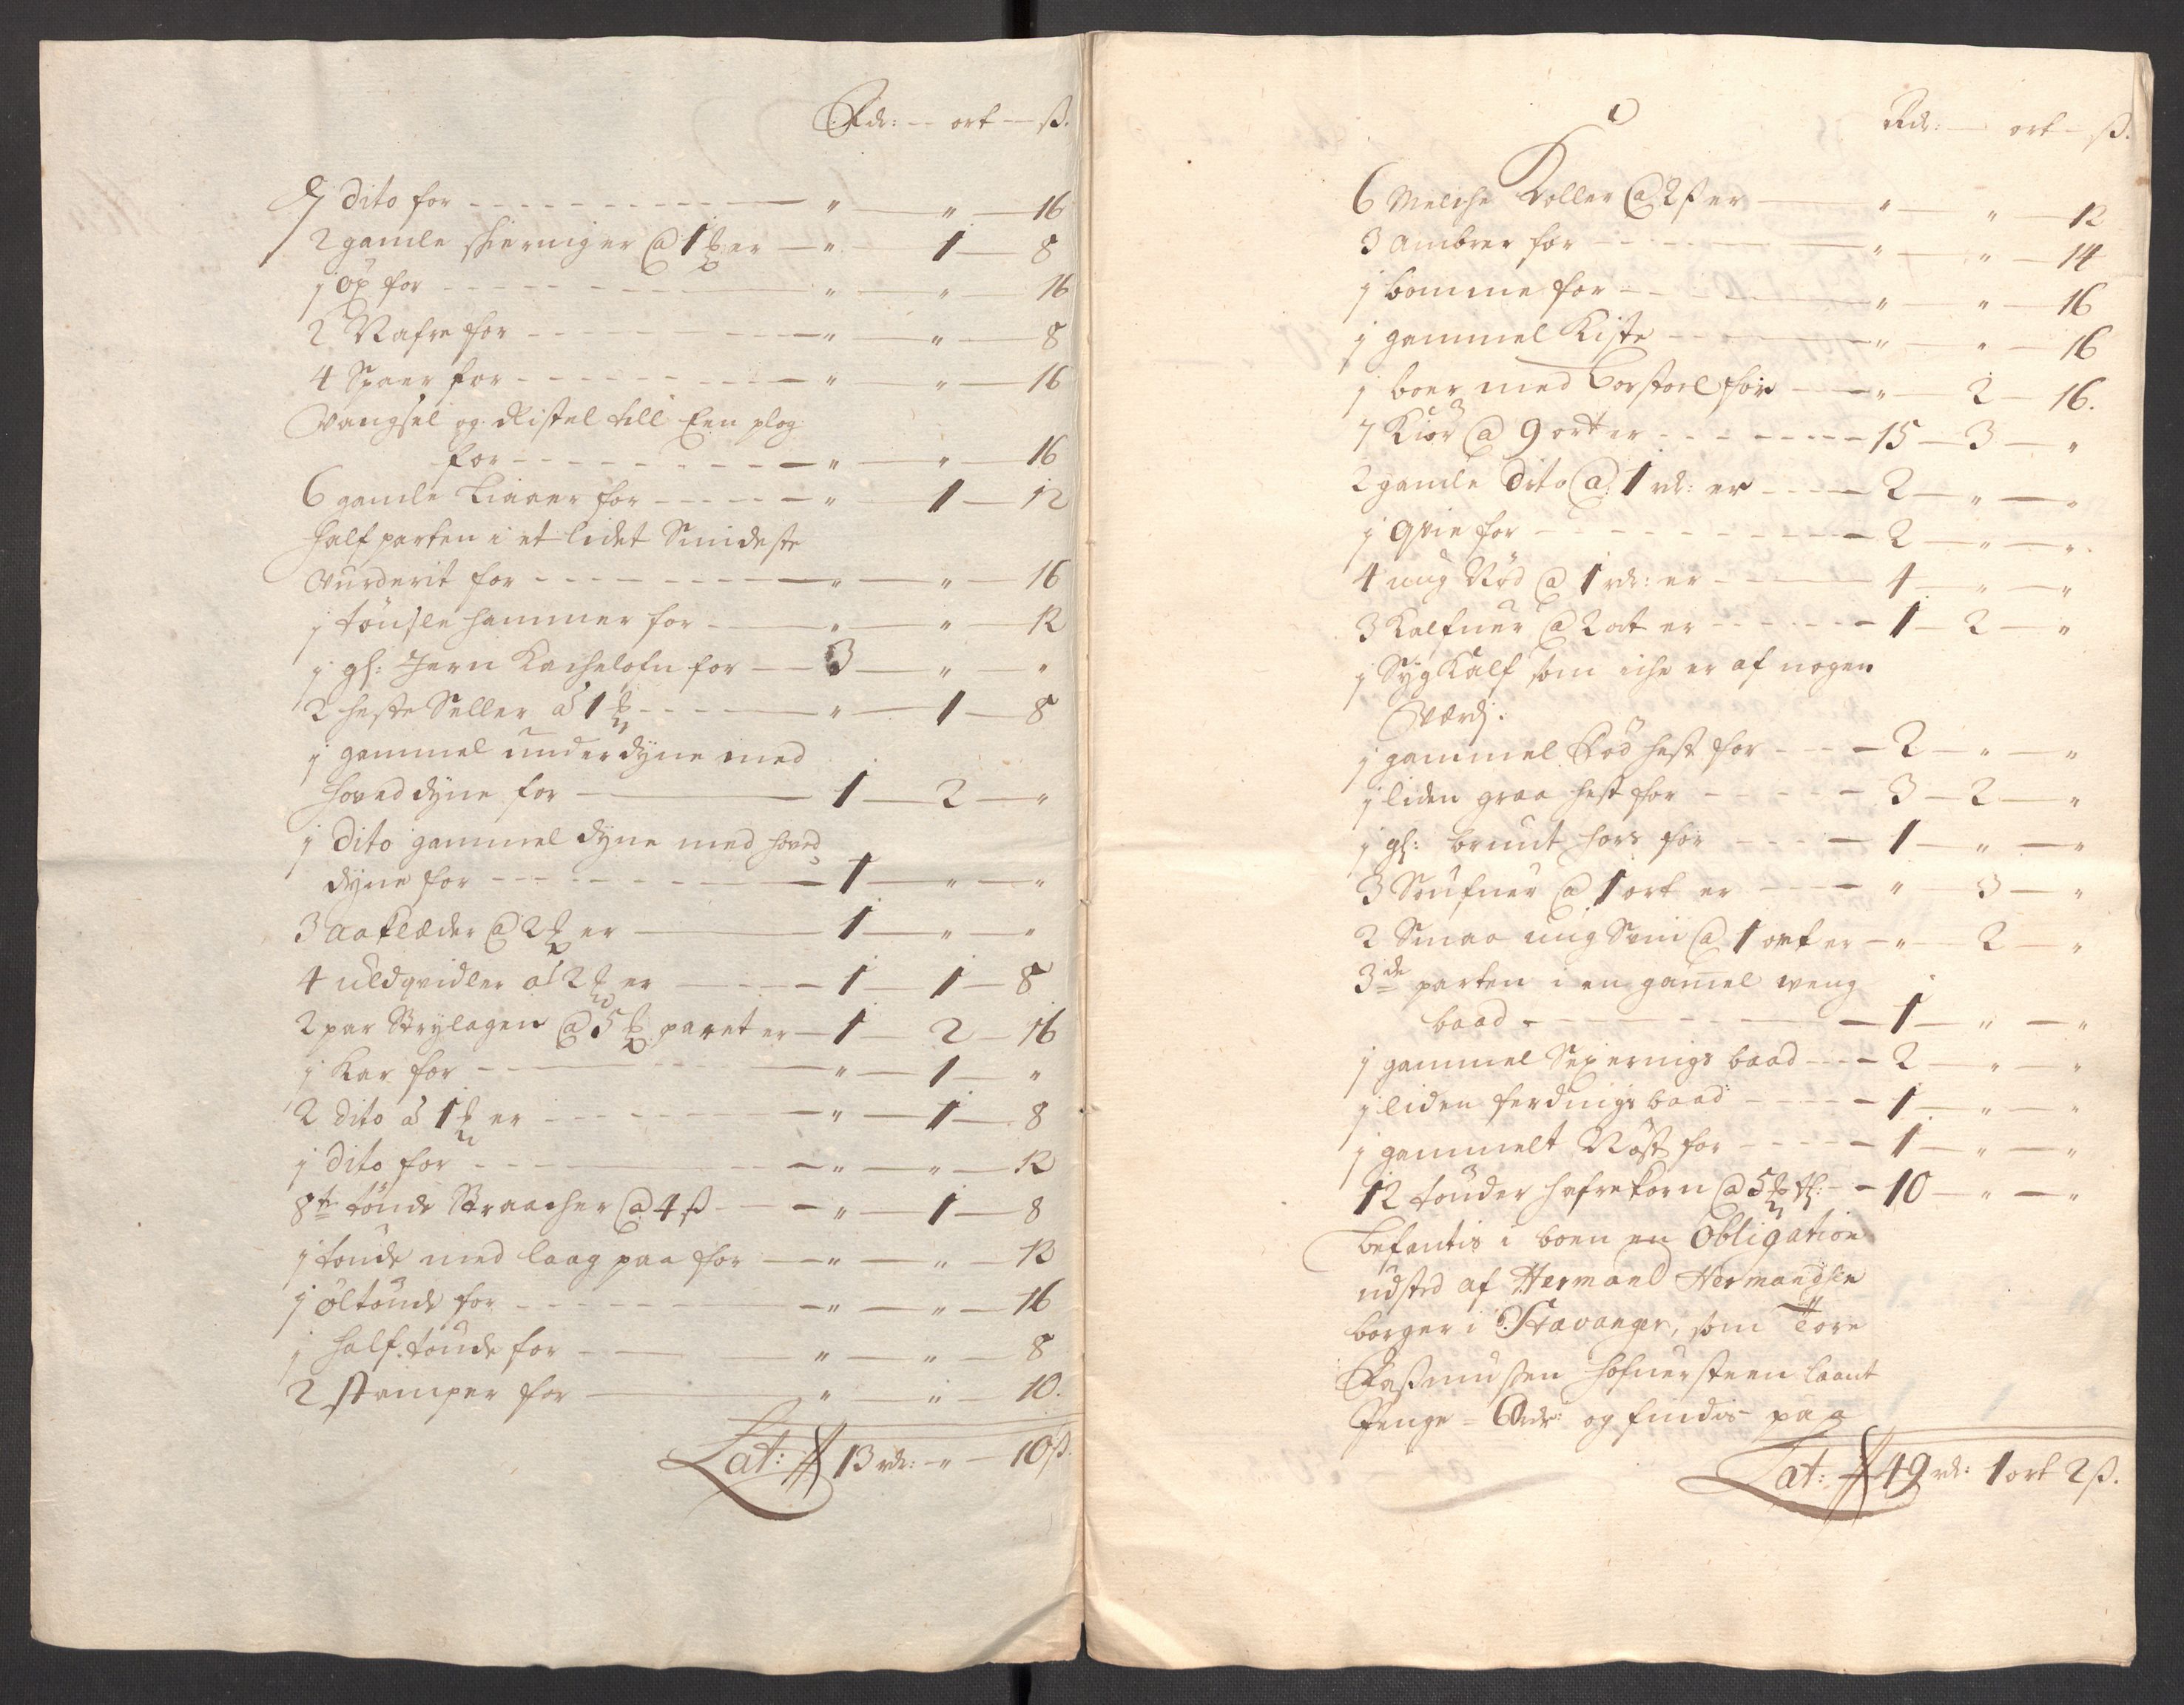 Rdr: — ort — ß.
7 dito for — " — " — 16
2 gamle skierniger @ 1 ₻ er — " — 1 — 8
j öx for — " — " — 16
2 Nafre for — " — " — 8
4 Spaer for — " — " — 16
Vangsel og Ristel till Een plog
for — " — " — 16
6 gamle Liaaer for — " — 1 — 12
half parten i et lidet Smideste
Vurderit for — " — " — 16
j hammer for — " — " — 12
j gl: Jern Kachelofn for — 3 — " — "
2 heste Seller á 1 ₻ — " — 1 — 8
j gammel underdyne med
hoved dyne for — 1 — 2 — "
j dito gammel dyne med hoved
dyne for — 1 — " — "
3 aaklæder @ 2 ₻ er — 1 — " — "
4 uldqvidler á 2 ₻ er — 1 — 1 — 8
2 par Strylagen @ 5 ₻ paret er — 1 — 2 — 16
j Kar for — " — 1 — "
2 dito á 1 ₻ er — " — 1 — 8
j dito for — " — " — 12
8te tönde Straacher @ 4 ß — " — 1 — 8
j tönde med laag paa for — " — " — 12
j öltönde for — " — " — 16
j half tönde for — " — " — 8
2 stamper for — " — " — 10.
Lat: 13 rdr: — " — 10 ß.
Rdr: — ort — ß.
6 Melche Koller @ 2 ß er — " — " — 12
3 ambrer for — " — " — 14
j bomme for — " — " — 16
j gammel Kiste — " — " — 16
j boer med borstoel for — " — 2 — 16.
7 Kiör @ 9 ort er — 15 — 3 — "
2 gamle dito @ 1 rdr: er — 2 — " — "
j qvie for — 2 — " — "
4 ung Nöd @ 1 rdr: er — 4 — " — "
3 Kalfuer @ 2 ort er — 1 — 2 — "
j Syg Kalf som iche er af nogen
Værdj.
j gammel Röd hest for — 2 — " — "
j liden graa hest for — 3 — 2 — "
j gl: brunt hors for — 1 — " — "
3 Soufuer @ 1 ort er — " — 3 — "
2 Smaa ung Svin @ 1 ort er — " — 2 — "
3de parten i en gamel weng
baad — 1 — " — "
j gammel Sexernigs baad — 2 — " — "
j liden ferdings baad — 1 — " — "
j gammelt Nöst for — 1 — " — "
12 tönder hafrekorn @ 5 ₻ tl: — 10 — " — "
Befantis i boen en Obligation
udsted af Hermand Hermandsen
borger i Stavanger, som Tore
Rasmussen laant
Penge — 60 rdr: og findis paa
Lat: 49 rdr: 1 ort 2 ß.